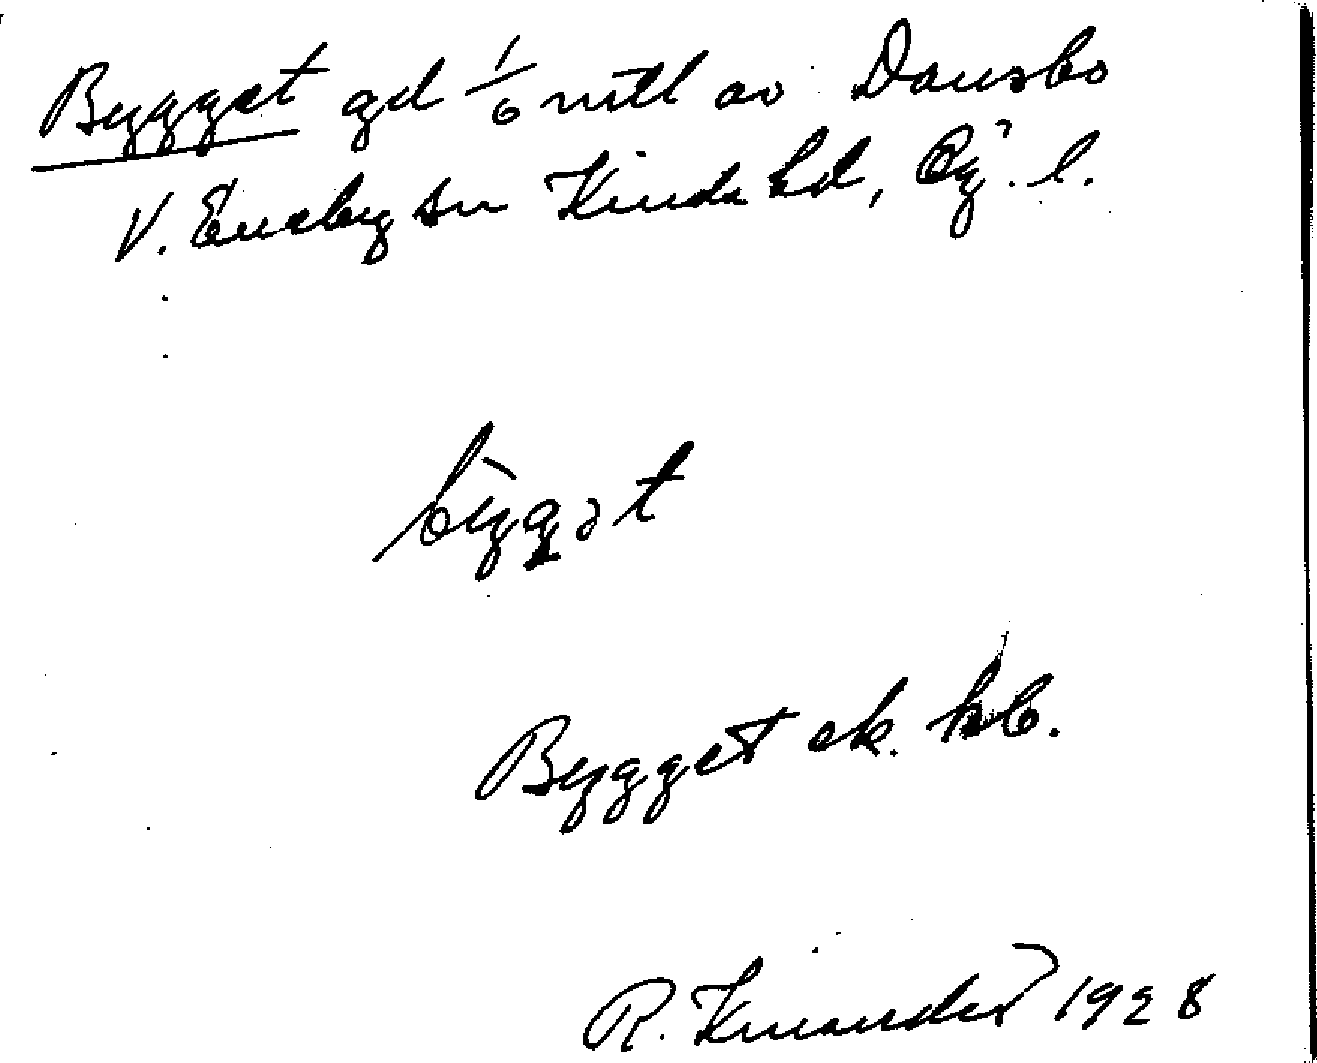 Bygget gd 1/6 mtl av Dansbo
V. Eneby sn Kinda hd, Ög. l.
bỳgət
Bygget ek. kb.
R. Kinander 1928